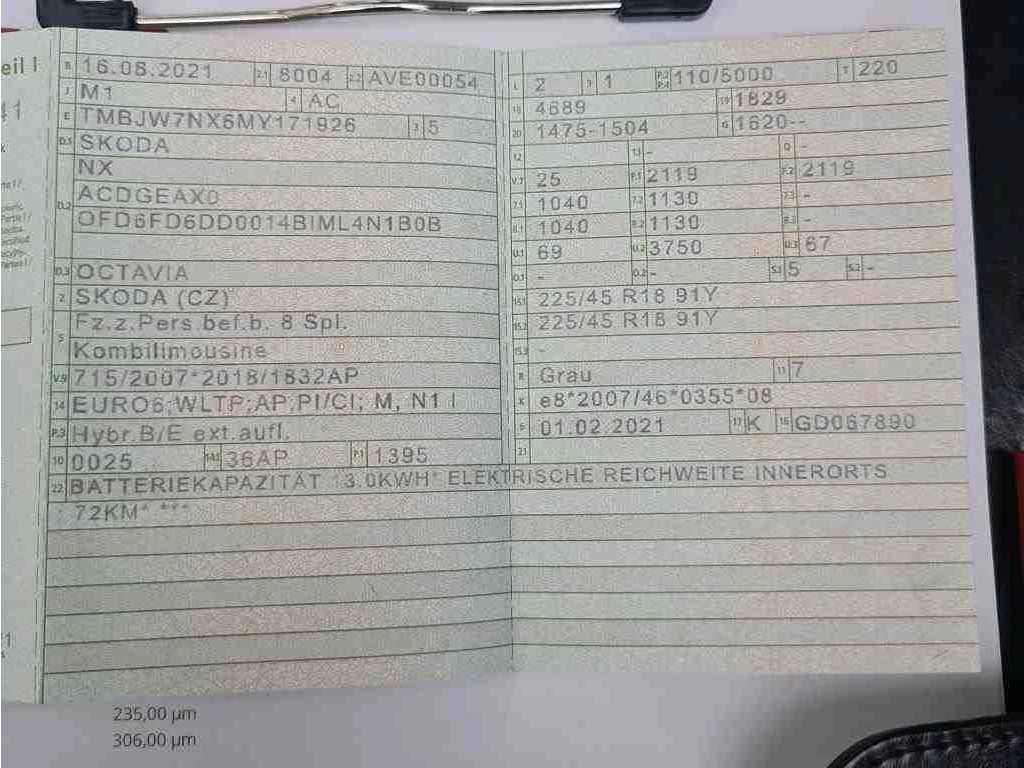 eil I
B 16.08.2021 2.1 8004 2.2 AVE00054
J M1 4 AC
E TMBJW7NX6MY171926 3 5
D.1 SKODA
NX
D.2 ACDGEAX0
OFD6FD6DD0014BIML4N1B0B
D.3 OCTAVIA
2 SKODA (CZ)
5 Fz.z.Pers.bef.b. 8 Spl.
Kombilimousine
V.9 715/2007*2018/1832AP
14 EURO6;WLTP;AP;PI/CI; M, N1 I
P.3 Hybr.B/E ext.aufl.
10 0025 14.1 36AP P.1 1395
L 2 9 1 P.2 P.4 110/5000 T 220
18 4689 19 1829
20 1475-1504 G 1620--
12 - 13 - Q -
V.7 25 F.1 2119 F.2 2119
7.1 1040 7.2 1130 7.3 -
8.1 1040 8.2 1130 8.3 -
U.1 69 U.2 3750 U.3 67
O.1 - O.2 - S.1 5 S.2 -
15.1 225/45 R18 91Y
15.2 225/45 R18 91Y
15.3 -
R Grau 11 7
K e8*2007/46*0355*08
6 01.02.2021 17 K 16 GD067890
21
22 BATTERIEKAPAZITÄT 13.0KWH* ELEKTRISCHE REICHWEITE INNERORTS
72KM* ***
235,00 µm
306,00 µm